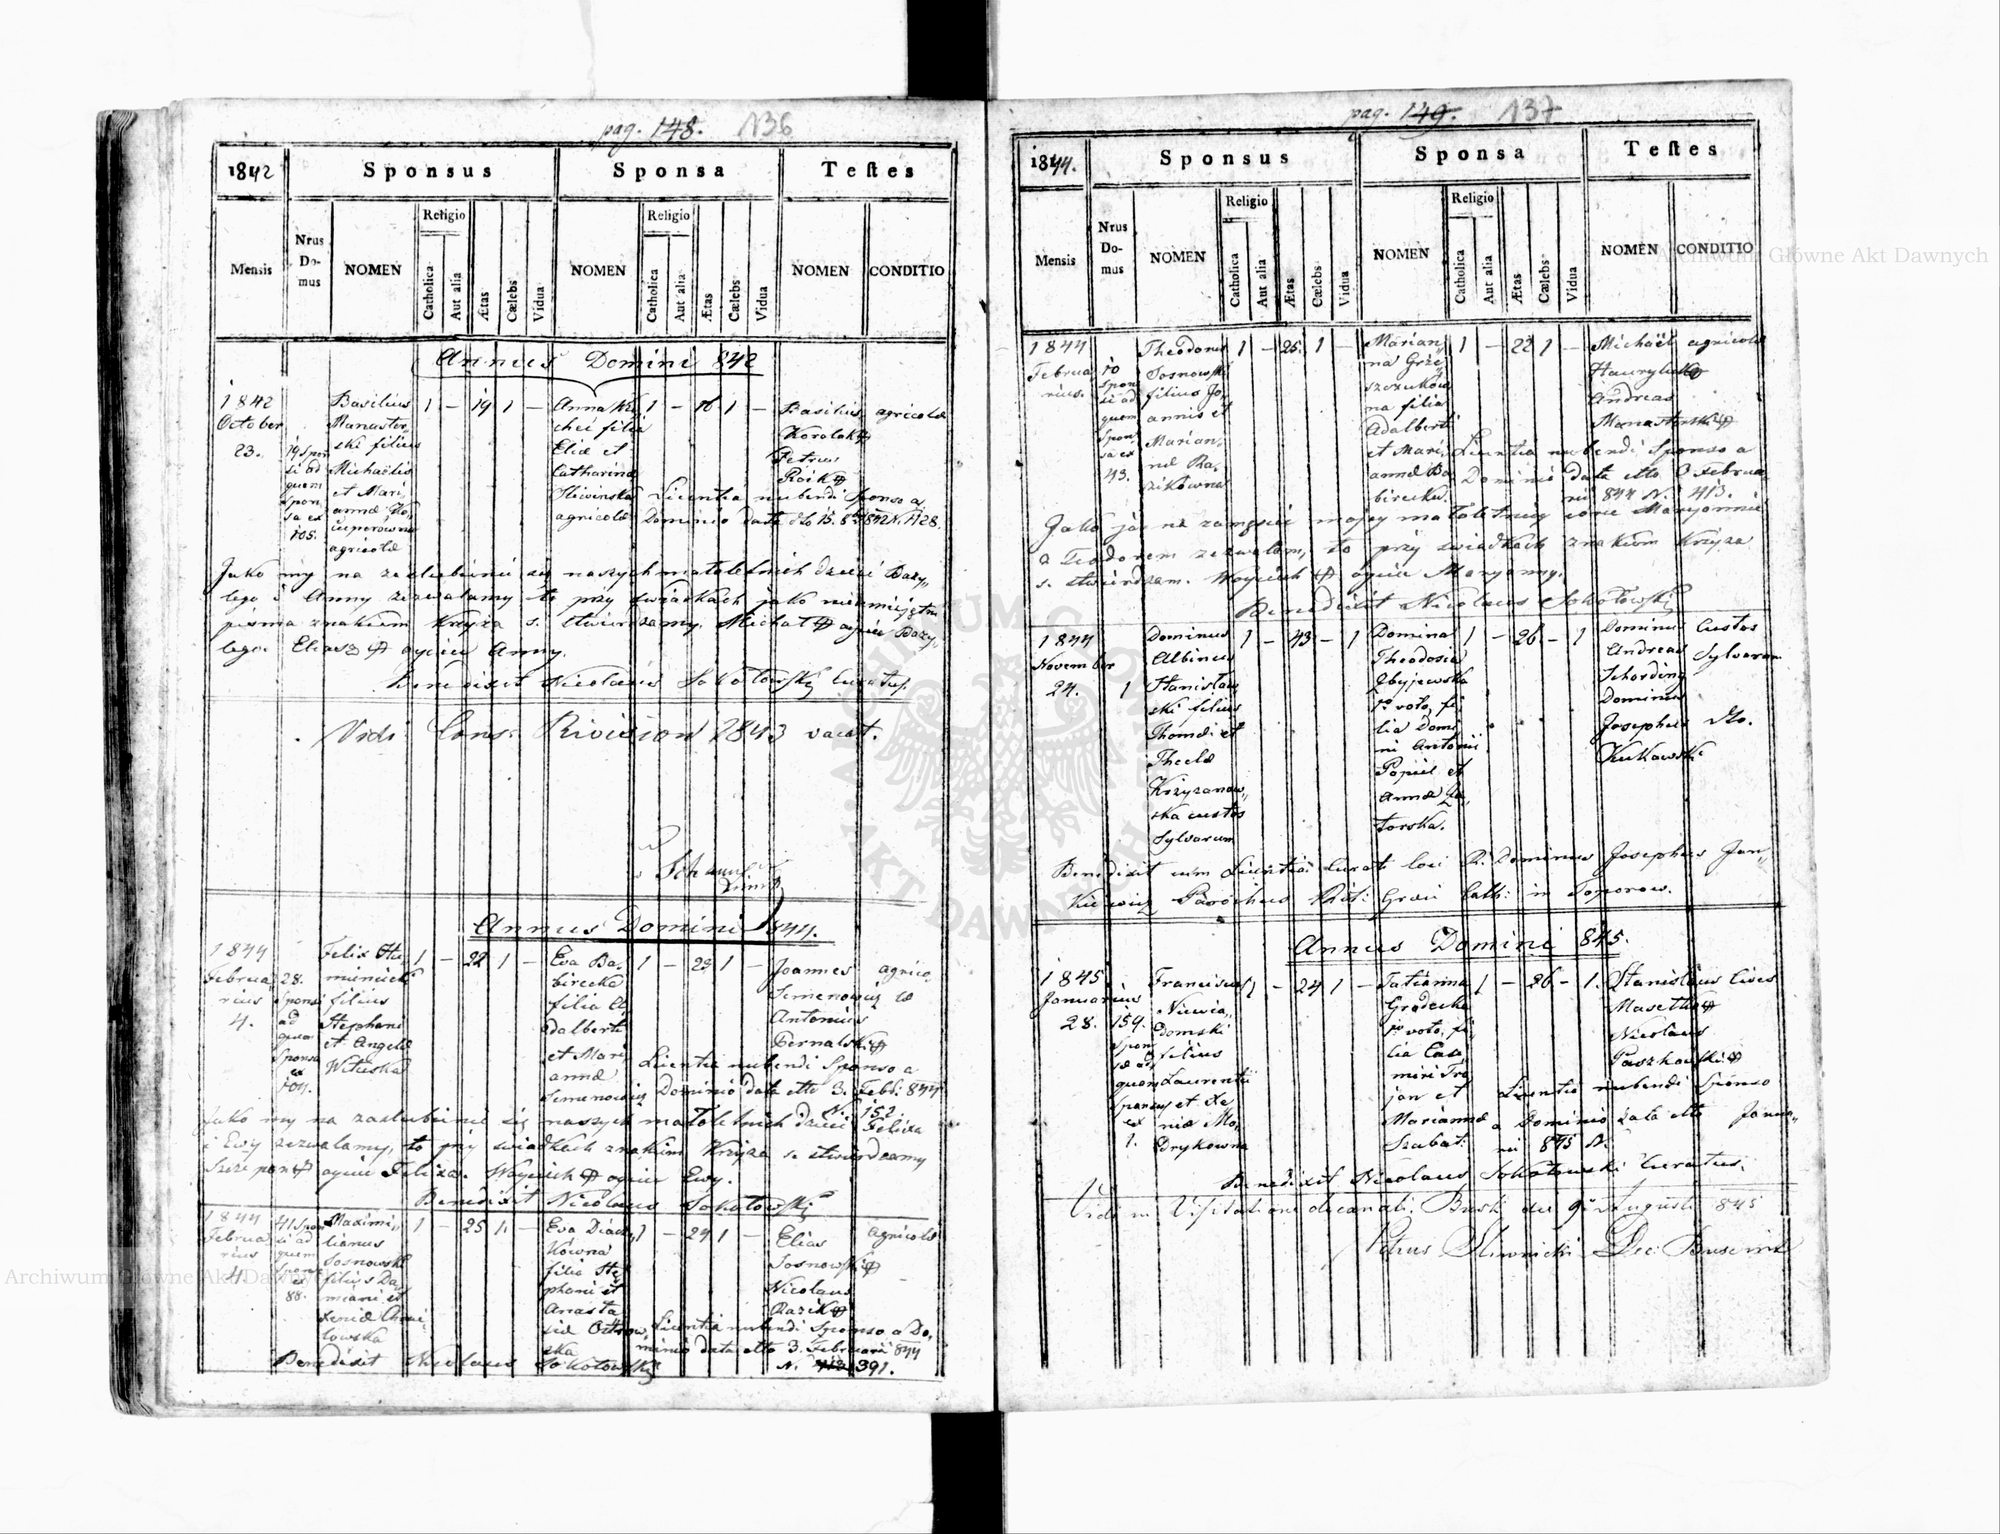 pag. 148. 136
1842 Sponsus Sponsa Testes
Mensis Nrus Domus NOMEN Religio Catholica Aut alia Ætas Cælebs Vidua NOMEN Religio Catholica Aut alia Ætas Cælebs Vidua NOMEN CONDITIO
Annus Domini 842
1842
October
23.
19 Spon
si ad
quem
spon
sa ex
105.
Basilius
Manaster
ski filius
Michaelis
et Mari
annæ
agricolæ
1 – 19 1 –
Anna
filia
Eliæ et
Catharinæ
Sliwinska
agricolæ
1 – 16 1 –
Basilius
Koralok
Petrus
Rożk
agricolæ
Licentia nubendi Sponso a
Dominio data dto 15. 8bris 842 N. 1128.
Jako my na zaslubienie się naszych małoletnich dzieci Bazy„
lego i Anny zezwalamy to przy swiadkach jako nieumiejętni
pisma znakiem krzyża s. stwierdzamy. Michał ojciec Bazy„
lego. Eliasz ojciec Anny.
Benedixit Nicolaus Sokołowski Curatus.
Vidi Revision 1843 vacat.
Annus Domini 844.
1844
Februa
rius
4.
28.
Sponsi
ad
quem
Sponsa
ex
104.
Felix
filius
Stephani
et Angelæ
Wituska
1 – 22 1 –
Eva Ba„
birecka
filia A„
dalberti
et Mari
annæ
Semenowicz
1 – 23 1 –
Joannes
Semenowicz
Antonius
Bernalski
agrico„
læ
Licentia nubendi Sponso a
Dominio data dto 3. Febr: 844
N. 152.
Jako my na zaslubienie się naszych małoletnich dzieci Felixa
i Ewy zezwalamy, to przy swiadkach znakiem krzyża s. stwierdzamy
Szczepan ojciec Felixa. Woyciech ojciec Ewy.
Benedixit Nicolaus Sokołowski
1844
Februa
rius
4.
41 Spon
si ad
quem
Sponsa
ex
88.
Maximi„
lianus
Sosnowski
filius Da„
miani et
Xeniæ
1 – 25 1 –
Eva Diacz„
kówna
filia Ste
phani et
Anasta
siæ Ostrow„
ska
1 – 24 1 –
Elias
Sosnowski
Nicolaus
Razik
agricolæ
Licentia nubendi Sponso a Do„
minio data dto 3. Februarii 844
N. 391.
Benedixit Nicolaus Sokołowski
pag. 149. 137
1844. Sponsus Sponsa Testes
Mensis Nrus Domus NOMEN Religio Catholica Aut alia Ætas Cælebs Vidua NOMEN Religio Catholica Aut alia Ætas Cælebs Vidua NOMEN CONDITIO
1844
Februa
rius.
10
spon
si ad
quem
spon
sa ex
43.
Theodorus
Sosnowski
filius Jo„
annis et
Marian„
næ Ra„
zikówna
1 – 25. 1 –
Marian„
na Grze„
szczuków
na filia
Adalberti
et Mari„
annæ Ba
birecka.
1 – 22 1 –
Michaël
Hawryluk
Andreas
Manasterski
agricolæ
Licentia nubendi Sponso a
Dominio data dto Februa
rii 844 N. 413.
Jako ja na zamęście mojey małoletniey córki Maryanny
z Teodorem zezwalam, to przy swiadkach znakiem krzyża
s. stwierdzam. Woyciech ojciec Maryanny.
Benedixit Nicolaus Sokołowski
1844
November
24.
1
Dominus
Albinus
Stanisław„
ski filius
Thomæ et
Theclæ
Krzyzanow„
ska custos
Sylvarum
1 – 43 – 1
Domina
Theodosia
Zbyjewska
1o voto, fi„
lia Domi
ni Antonii
Popiel et
Annæ Za„
torska.
1 – 26 – 1
Dominus
Andreas
Schording
Dominus
Josephus
Kukawski
Custos
Sylvarum
dto.
Benedixit cum Licentia Curati loci R. Dominus Josephus Jan„
kiewicz Parochus Rit: Græci Cath: in Toporow.
Annus Domini 845.
1845.
Januarius
28.
159.
Spon
sæ ad
quam
Sponsus
ex
1.
Franciscus
Niewia„
domski
filius
Laurentii
et Xe
niæ Mo„
drykowna
1 – 24 1 –
Tatianna
Gródecka
1o voto, fi„
lia Casi
miri Tro
jan et
Mariannæ
Szubat.
1 – 26 – 1.
Stanislaus
Masetko
Nicolaus
Paszkowski
Cives
Licentia nubendi Sponso
a Dominio data dto Janua„
rii 845 N.
Benedixit Nicolaus Sokołowski Curatus.
Vidi in Visitatione decanali. Busk die 9a Augusti 845
Petrus Sliwnicki Dec: Buscensis
Archiwum Główne Akt Dawnych
Archiwum Główne Akt Dawnych
ARCHIWUM GŁÓWNE AKT DAWNYCH